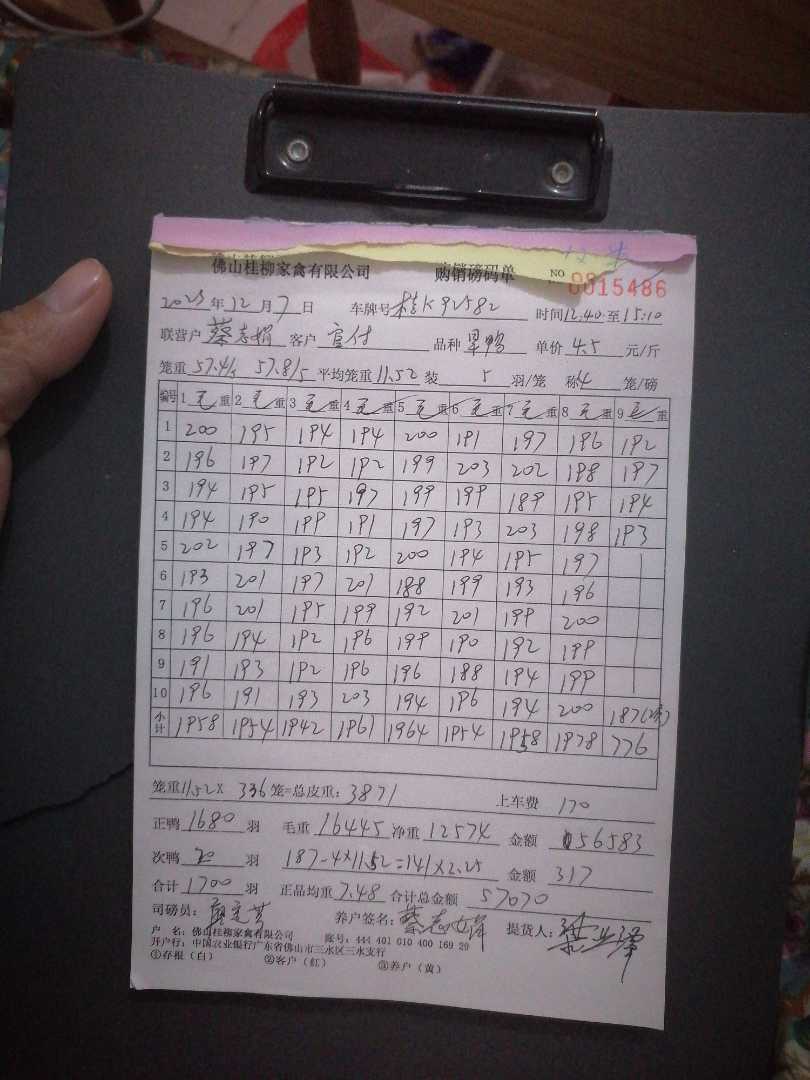 佛山桂柳家禽有限公司 购销磅码单 NO 0015486
2023 年 12 月 7 日 车牌号 桂K92582 时间 12:40 至 15:10
联营户 蔡志娟 客户 官付 品种 旱鸭 单价 4.5 元/斤
笼重 57.4/5 57.8/5 平均笼重 11.52 装 5 羽/笼 称 4 笼/磅
编号 1 毛 重 2 毛 重 3 毛 重 4 毛 重 5 毛 重 6 毛 重 7 毛 重 8 毛 重 9 毛 重
1 200 195 194 194 200 191 197 196 192
2 196 197 192 192 199 203 202 198 197
3 194 195 195 197 199 199 189 195 194
4 194 190 199 191 197 193 203 198 193
5 202 197 193 192 200 194 195 197
6 193 201 197 201 188 199 193 196
7 196 201 195 199 192 201 199 200
8 196 194 192 196 199 190 192 199
9 191 193 192 196 196 188 194 199
10 196 191 193 203 194 196 194 200 187
小计 1958 1954 1942 1961 1964 1954 1958 1978 776
笼重 11.52 X 336 笼=总皮重: 3871 上车费 170
正鸭 1680 羽 毛重 16445 净重 12574 金额 56583
次鸭 20 羽 187-4×11.52=141×2.25 金额 317
合计 1700 羽 正品均重 7.48 合计总金额 57070
司磅员: 养户签名: 提货人:
户 名: 佛山桂柳家禽有限公司 账号: 444 401 010 400 169 29
开户行: 中国农业银行广东省佛山市三水区三水支行
①存根（白） ②客户（红） ③养户（黄）